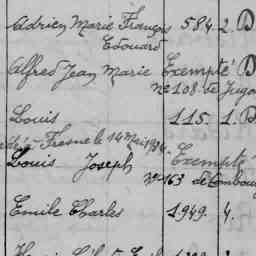 Adrien Marie François 584. 2. D
Edouard
Alfred Jean Marie Exempté D
No 108 de Jugo
Louis 115. 1. D
Fresne le 14 Mai 1934
Louis Joseph Exempté
No 163 de Combou
Emile Charles 1.949. 4.